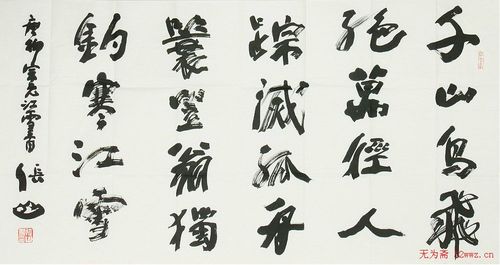 千山鳥飛
絶萬徑人
蹤滅孤舟
蓑笠翁獨
釣寒江雪
唐柳宗元江雪
无为斋 52wwz.cn